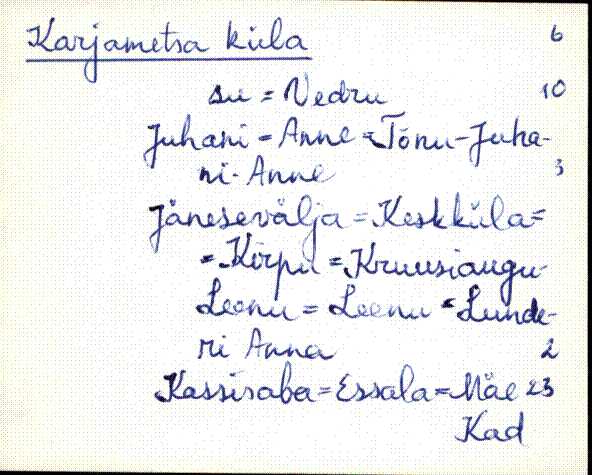 Karjametsa küla 6
su = Vedru 10
Juhani = Anne = Tõnu-Juha-
ni-Anne 3
Jänesevälja = Keskküla =
= Kõrpu = Kruusiaugu-
Leenu = Leenu = Lunde-
ri Anna 2
Kassisaba = Essala = Mäe 23
Kad